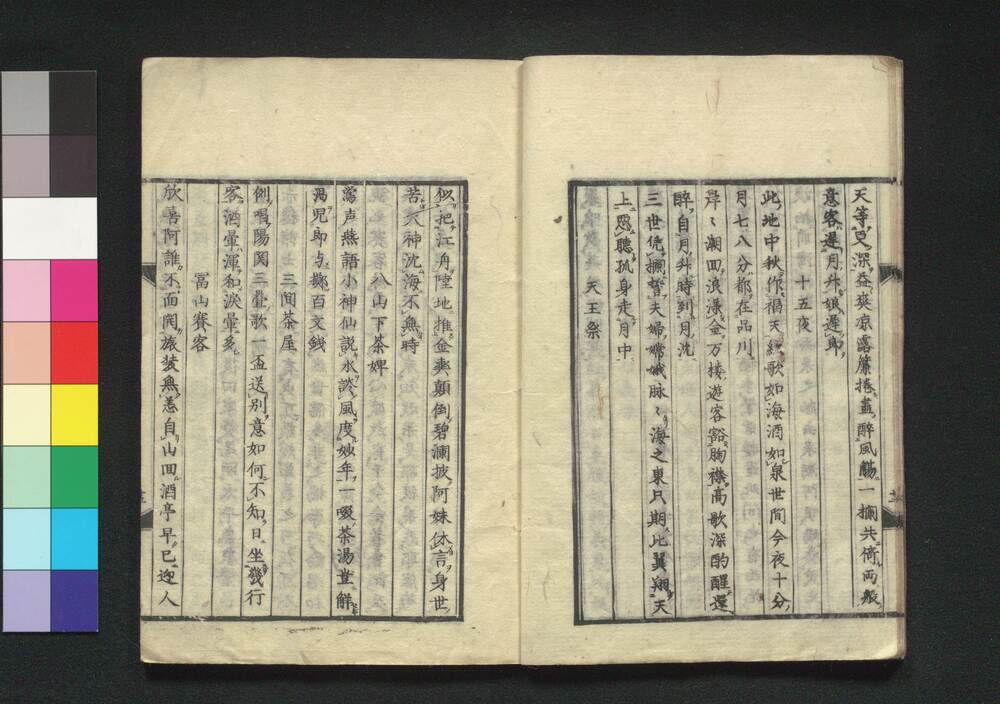 天等更深益爽凉露簾捲盡酔風觴一擱共倚両般
意客遅月舛娘遅郎
十五夜
此地中秋作禍天絃歌如海酒如泉世間今夜十分
月七八分都在品川
岸々潮回浪漾金万楼遊客豁胸襟高歌深酌醒還
酔自月舛時到月沈
三世凭擱誓夫婦嫦娥脉々海之東只期比翼翔天
上思聴孤身走月中
天王祭
似把江舟陸地推金輿顛倒碧瀾披阿妹休言身世
苦大神沈海不無時
八山下茶婢
鶯声燕語小神仙説水談風度妙年一啜茶湯豈解
渇児郎与擲百文銭
三間茶屋
例唱陽関三畳歌一盃送別意如何不知日坐発行
客酒暈渾和涙暈多
冨山賽客
欣喜阿誰不面開旅装無恙自山回酒亭早已迎人